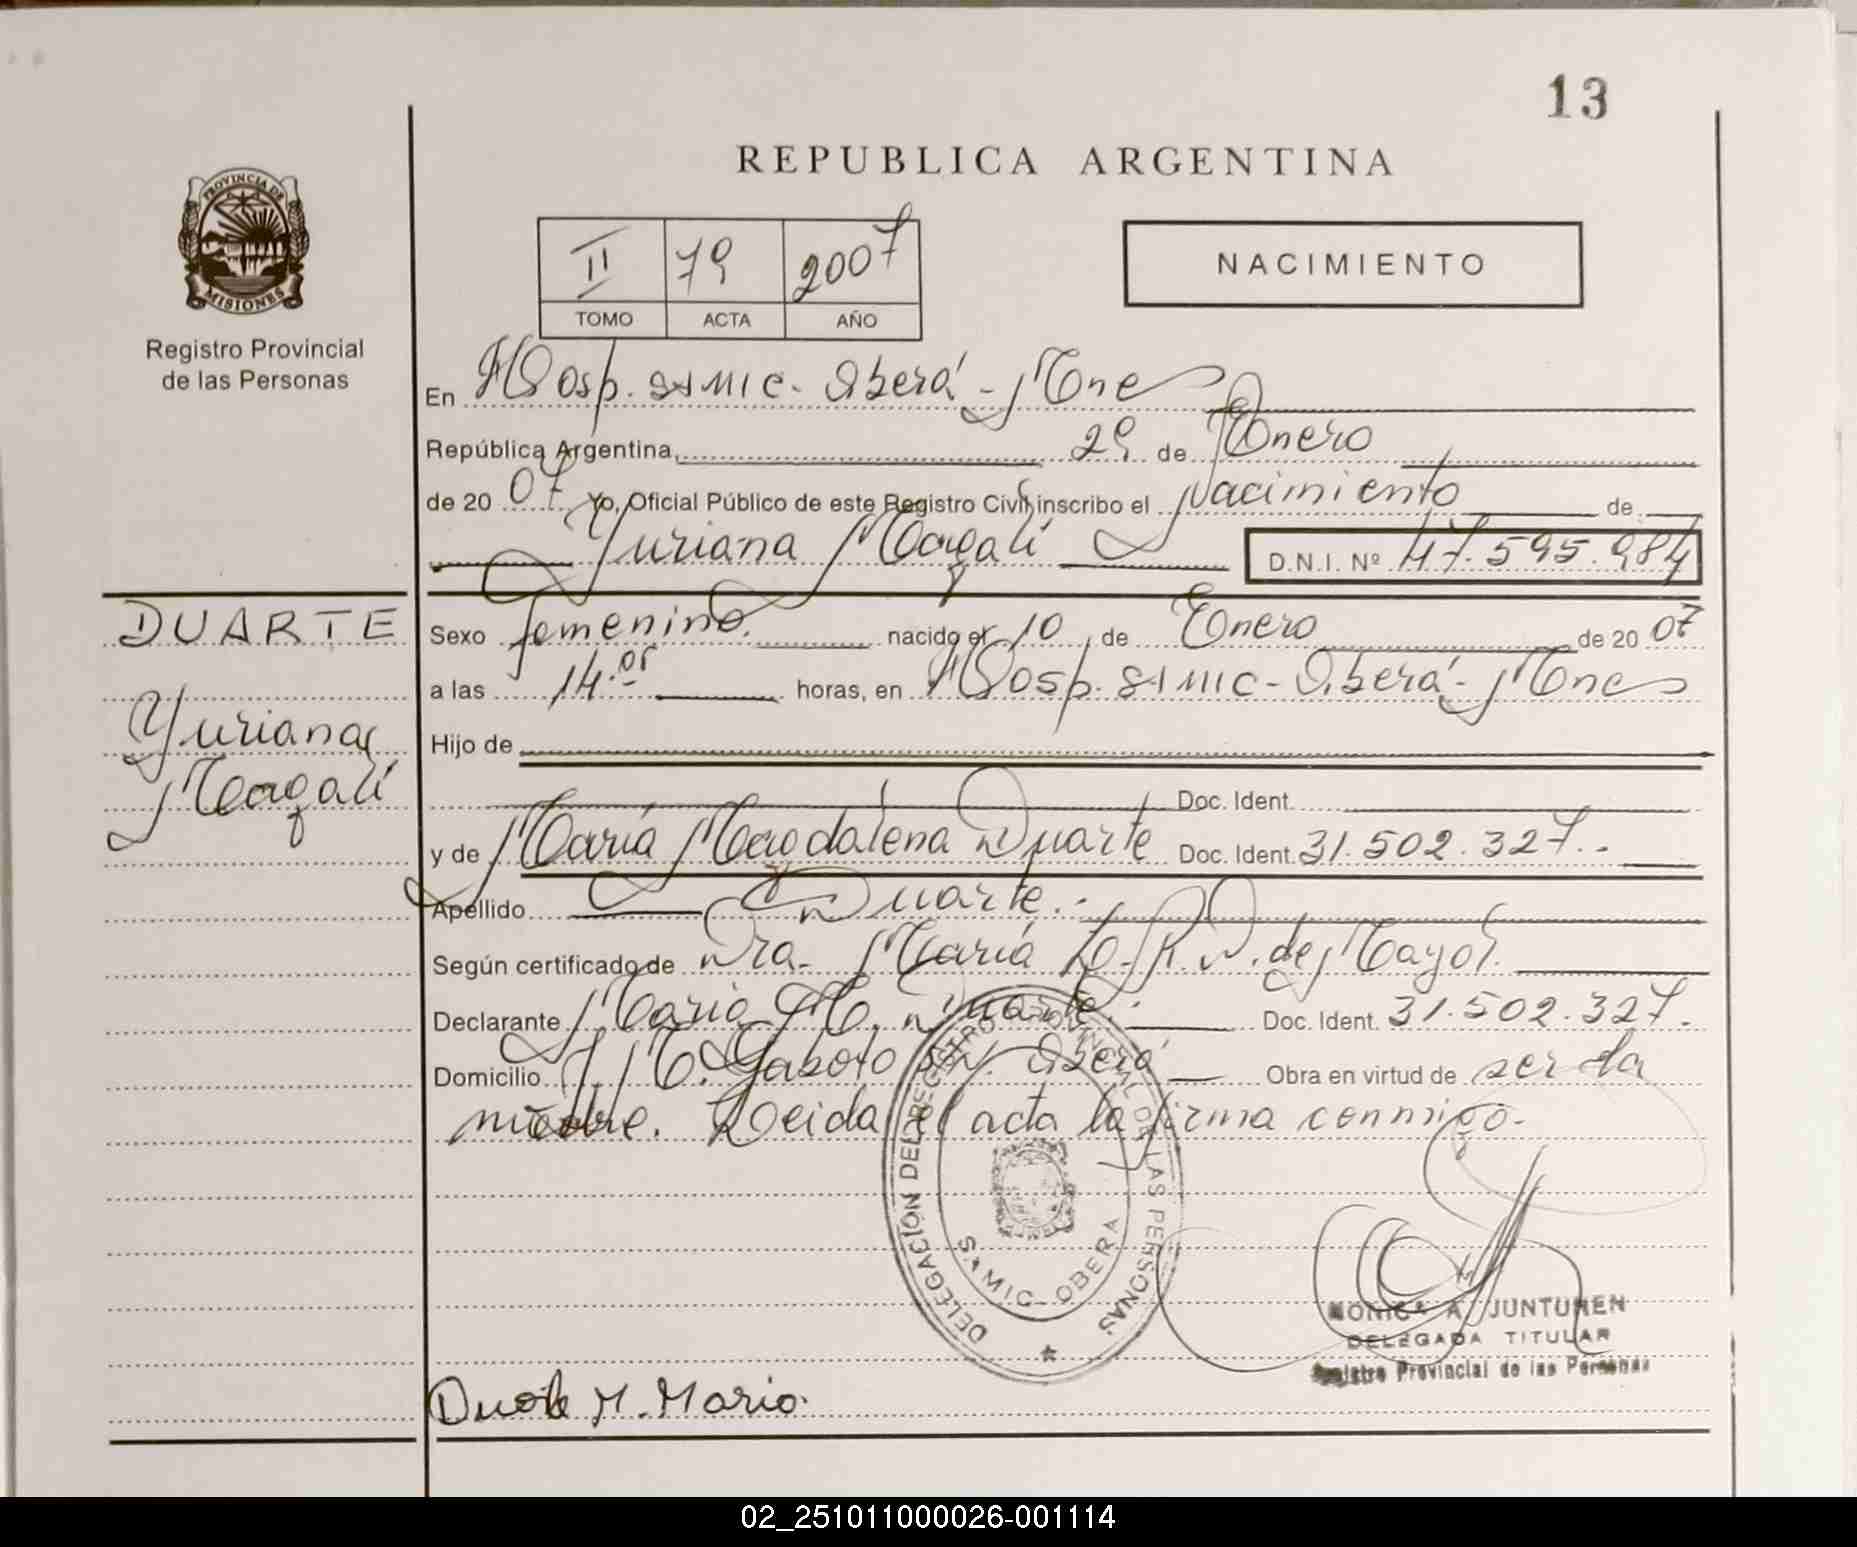 13
REPUBLICA ARGENTINA
PROVINCIA DE
MISIONES
Registro Provincial
de las Personas
II 79 2007
TOMO ACTA AÑO
NACIMIENTO
En Hosp. SAMIC - Oberá - Mnes
República Argentina, 29 de Enero
de 20 07 Yo, Oficial Público de este Registro Civil inscribo el Nacimiento de
Yuriana Magalí D.N.I. Nº 47.595.984
DUARTE
Yuriana
Magalí
Sexo femenino. nacido el 10 de Enero de 20 07
a las 14.or horas, en Hosp. SAMIC - Oberá - Mnes
Hijo de
Doc. Ident.
y de María Magdalena Duarte Doc. Ident. 31.502.327.-
Apellido Duarte.-
Según certificado de Dra. María de Mayol.
Declarante María M. Duarte. Doc. Ident. 31.502.327.
Domicilio Gaboto S/N. Oberá Obra en virtud de ser la
madre. Leida el acta la firma conmigo.
DELEGACIÓN DEL REGISTRO PROVINCIAL DE LAS PERSONAS
SAMIC - OBERA
MONICA A. JUNTUNEN
DELEGADA TITULAR
Registro Provincial de las Personas
Duarte M. Maria.
02_251011000026-001114